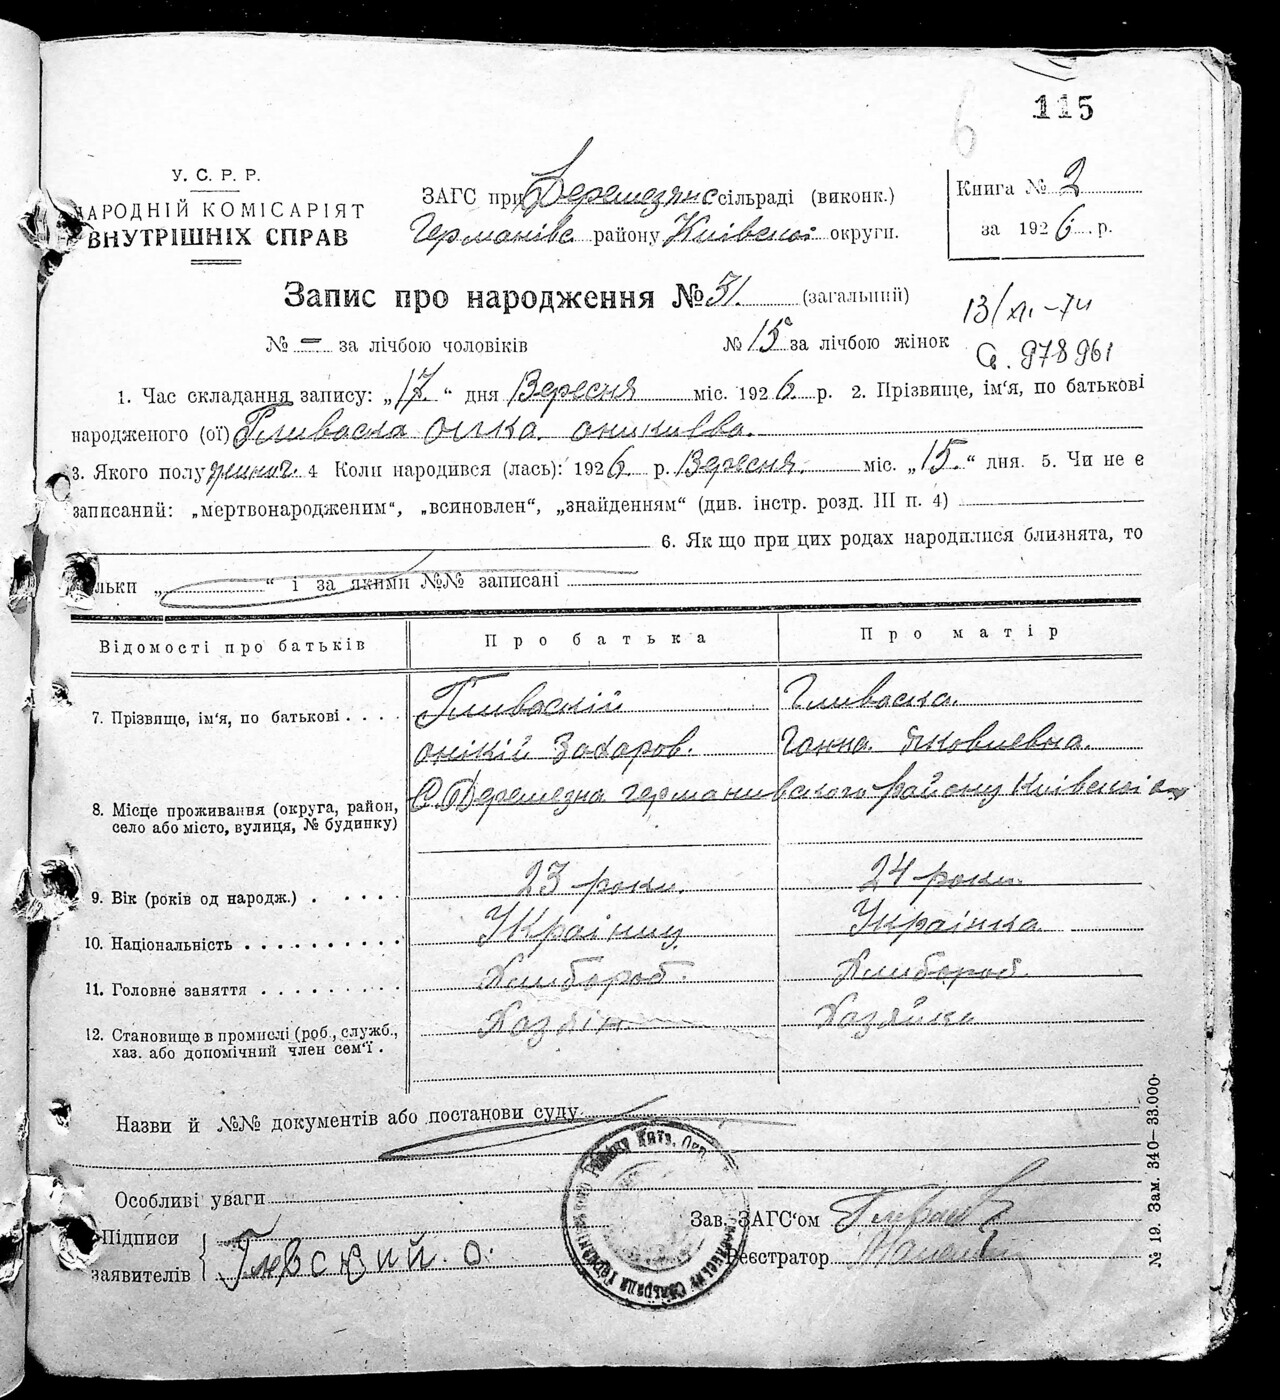 6
115
У. С. Р. Р.
НАРОДНІЙ КОМІСАРІЯТ
ВНУТРІШНІХ СПРАВ
ЗАГС при Деремезянс сільраді (виконк.)
Германівс. району Київської округи.
Книга № 2
за 1926 р.
Запис про народження № 31. (загальний)
13/XI.-74
№ – за лічбою чоловіків
№ 15 за лічбою жінок
978961
1. Час складання запису: „17." дня Вересня міс. 1926. р. 2. Прізвище, ім'я, по батькові
народженого (ої) Гливаска олка оникиєва.
3. Якого полу жіноч. 4 Коли народився (лась): 1926 р. Вересня. міс. „15." дня. 5. Чи не є
записаний: „мертвонародженим", „всиновлен", „знайденням" (див. інстр. розд. III п. 4)
6. Як що при цих родах народилися близнята, то
скільки „ " і за якими №№ записані
Відомості про батьків
Про батька
Про матір
7. Прізвище, ім'я, по батькові . . . .
Гливаский
Гливаска.
онікій Захаров.
Ганна Яковлевна.
8. Місце проживання (округа, район,
село або місто, вулиця, № будинку)
С. Деремезна германивского району Київскоі
9. Вік (років од народж.) . . . . .
23 роки.
24 роки.
10. Національність . . . . . . . . . .
Украінец
Украінка
11. Головне заняття . . . . . . . . .
Хлибороб.
Хлибороб.
12. Становище в промислі (роб., служб.,
хаз. або допомічний член сем'ї .
Хазяін
Хазяйка
Назви й №№ документів або постанови суду
Особливі уваги
Підписи
заявителів
Глевский. О.
Зав. ЗАГС'ом
Реєстратор
Району Київ. Окр.
№ 19. Зам. 340—33.000